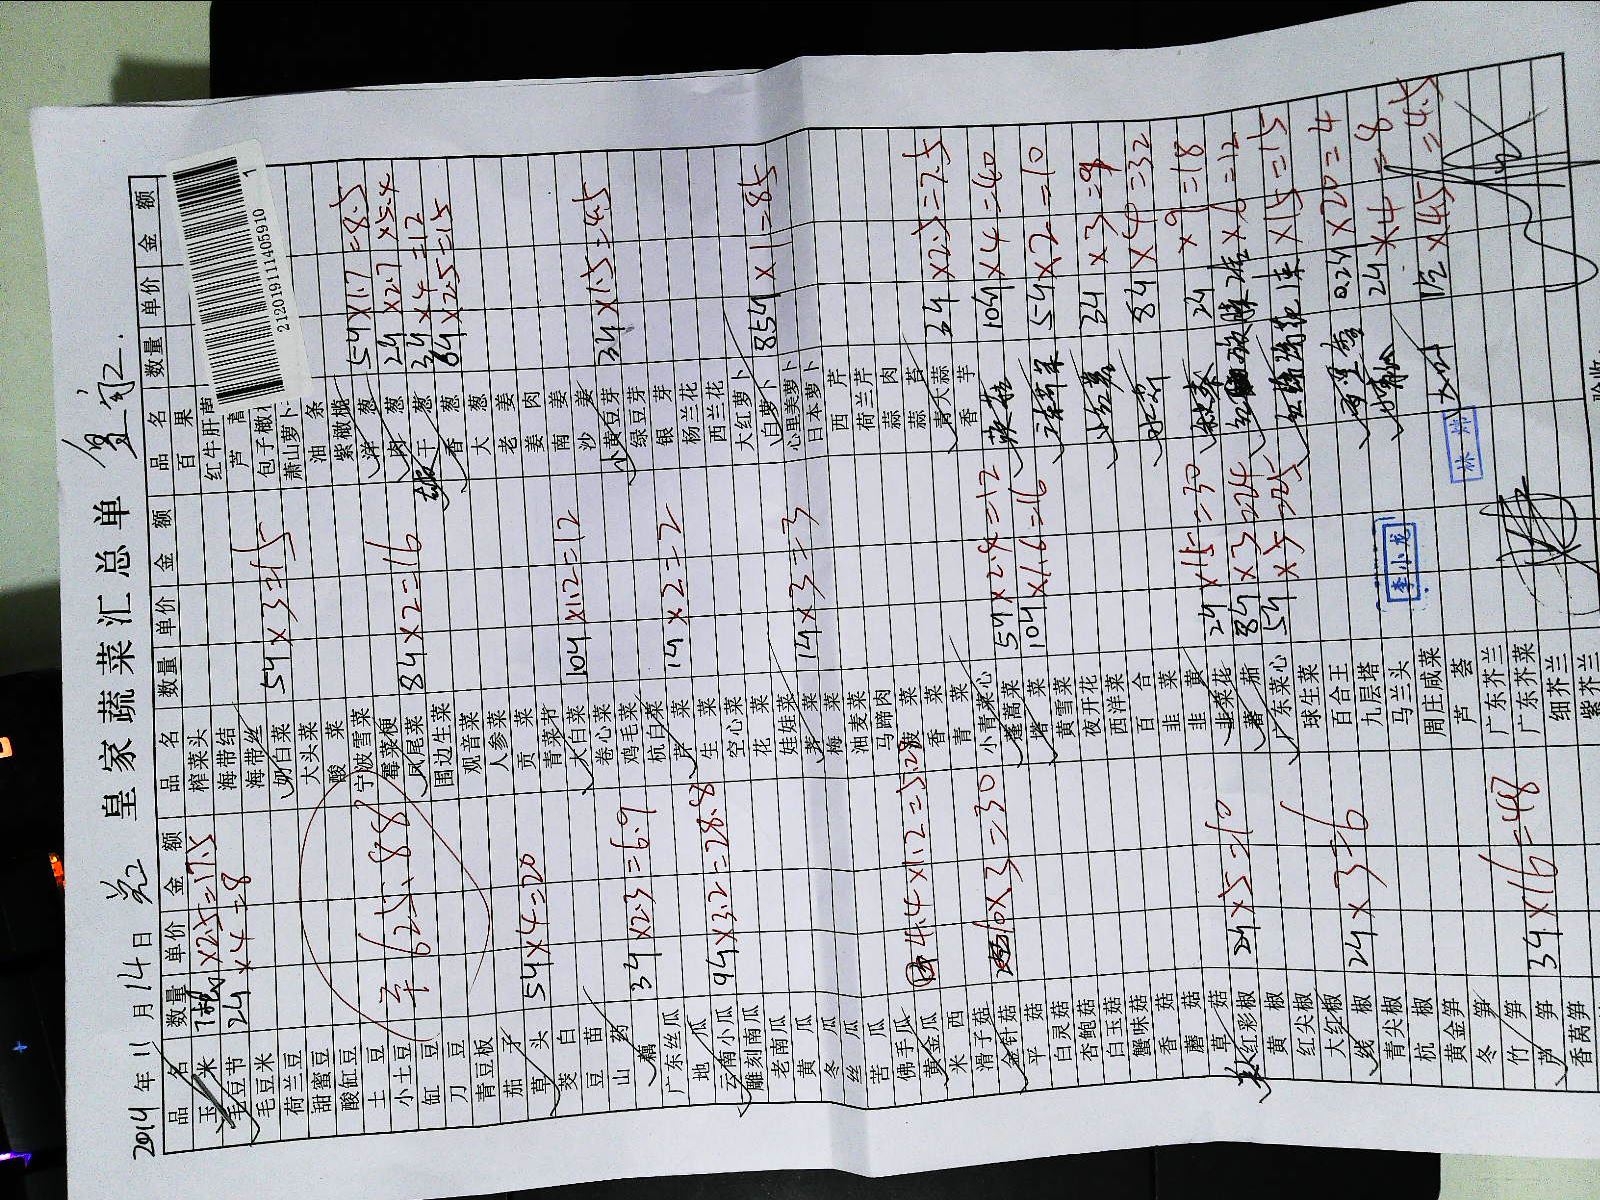 皇家蔬菜汇总单
2014年11月14日
品名 数量 单价 金额 品名 数量 单价 金额 品名 数量 单价 金额
玉米 ×2.5=17.5 榨菜头 百果
毛豆节 2斤×4=8 海带结 红牛肝菌
毛豆米 海带丝 芦蒿
荷兰豆 奶白菜 5斤×3=15
甜蜜豆 大头菜 萧山萝卜
酸缸豆 酸菜 油条
土豆 宁波雪菜 紫橄榄
小土豆 霉菜梗 洋葱 5斤×1.7=8.5
缸豆 凤尾菜 8斤×2=16 肉葱 2斤×2.7 ×5.4
刀豆 围边生菜 干葱 3斤×4=12
青豆板 观音菜 香葱 6斤×2.5=15
茄子 人参菜 大葱
草头 5斤×4=20 贡菜 老姜
茭白 青菜苔 姜肉
豆苗 大白菜 10斤×1.2=12 南姜
山药 卷心菜 沙姜
藕 3斤×2.3=6.9 鸡毛菜 小黄豆芽 3斤×1.5=4.5
广东丝瓜 杭白菜 绿豆芽
地瓜 芹菜 1斤×2=2 银芽
云南小瓜 9斤×3.2=28.8 生菜 杨兰花
雕刻南瓜 空心菜 西兰花
老南瓜 花菜 大红萝卜
黄瓜 娃娃菜 白萝卜 85斤×1=85
冬瓜 荠菜 1斤×3=3 心里美萝卜
丝瓜 梅菜 日本萝卜
苦瓜 油麦菜 西芹
佛手瓜 马蹄肉 荷兰芹
黄金瓜 4.4×1.2=5.28 菠菜 蒜肉
米西 香菜 蒜苔
滑子菇 青菜 青大蒜 3斤×2.5=7.5
金针菇 10×3=30 小青菜心 香芋
平菇 蓬蒿菜 5斤×2.4=12 10斤×4=40
白灵菇 塔菜 10斤×1.6=16 5斤×2=10
杏鲍菇 黄雪菜 3斤×3=9
白玉菇 夜开花 8斤×4=32
蟹味菇 西洋菜 2斤×9=18
香菇 百合 ×6=12
蘑菇 韭菜 ×15=15
草菇 韭黄
红彩椒 2斤×5=10 韭菜花 2斤×15=30 0.2斤×20=4
黄椒 蕃茄 8斤×3=24 2斤×4=8
红尖椒 广东菜心 5斤×5=25 ×45=4.5
大红椒 球生菜
线椒 2斤×3=6 百合王
青尖椒 九层塔
杭椒 马兰头
黄金笋 周庄咸菜
冬笋 芦荟
竹笋 广东芥兰
芦笋 3斤×16=48 广东芥菜
香莴笋 细芥兰
紫芥兰
625.88
212019111405910
1
李小龙